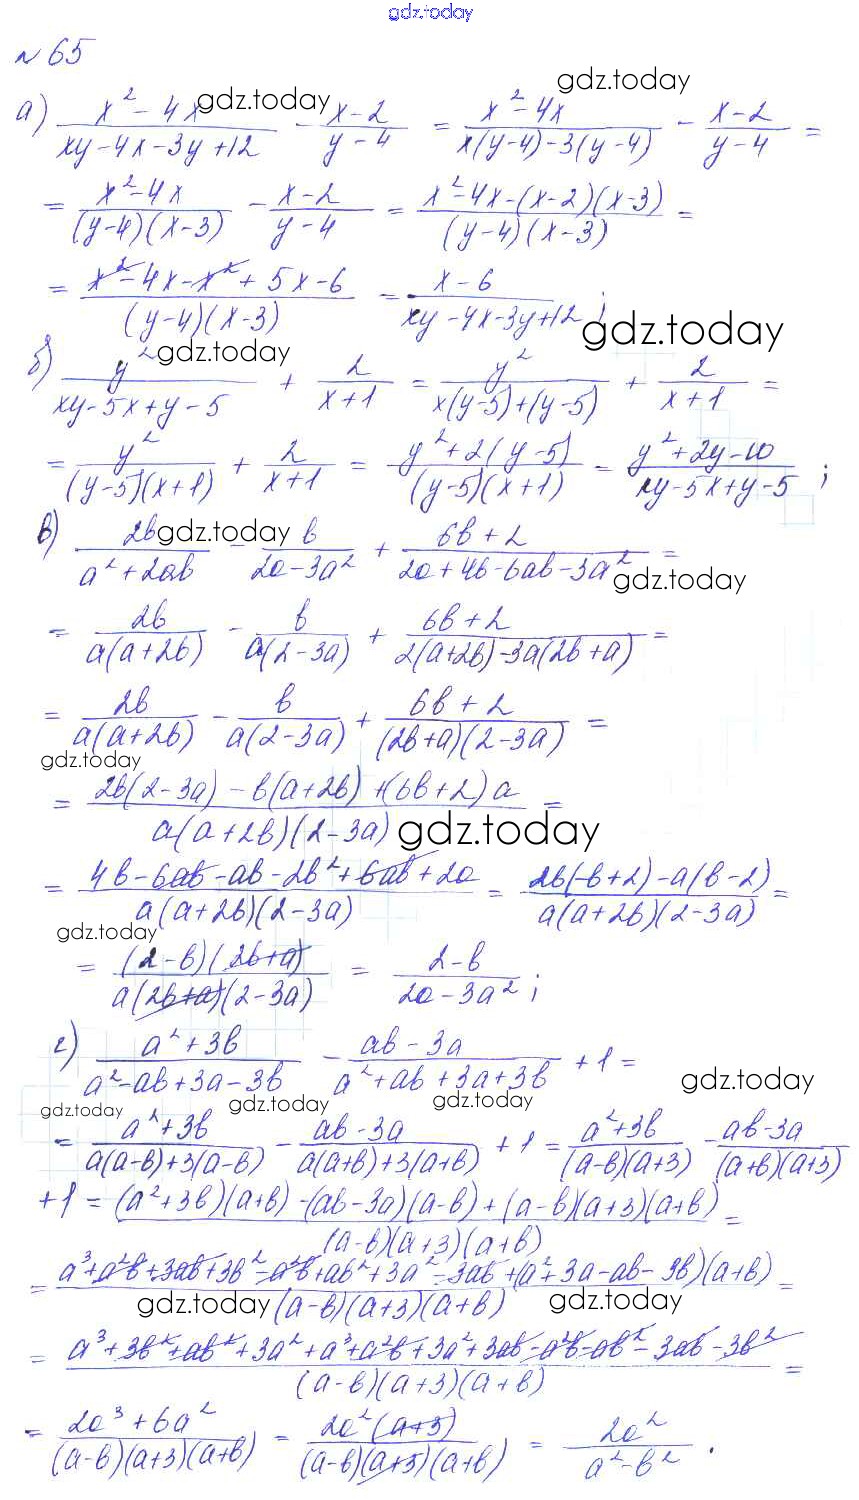 gdz.today
№65
gdz.today
а) (x² - 4x)/(xy-4x-3y+12) - (x-2)/(y-4) = (x²-4x)/(x(y-4)-3(y-4)) - (x-2)/(y-4) =
gdz.today
= (x²-4x)/((y-4)(x-3)) - (x-2)/(y-4) = (x²-4x-(x-2)(x-3))/((y-4)(x-3)) =
= (x²-4x-x²+5x-6)/((y-4)(x-3)) = (x-6)/(xy-4x-3y+12);
gdz.today
gdz.today
б) y²/(xy-5x+y-5) + 2/(x+1) = y²/(x(y-5)+(y-5)) + 2/(x+1) =
= y²/((y-5)(x+1)) + 2/(x+1) = (y²+2(y-5))/((y-5)(x+1)) = (y²+2y-10)/(xy-5x+y-5);
gdz.today
в) 2b/(a²+2ab) - b/(2a-3a²) + (6b+2)/(2a+4b-6ab-3a²) =
gdz.today
= 2b/(a(a+2b)) - b/(a(2-3a)) + (6b+2)/(2(a+2b)-3a(2b+a)) =
= 2b/(a(a+2b)) - b/(a(2-3a)) + (6b+2)/((2b+a)(2-3a)) =
gdz.today
= (2b(2-3a)-b(a+2b)+(6b+2)a)/(a(a+2b)(2-3a)) =
gdz.today
= (4b-6ab-ab-2b²+6ab+2a)/(a(a+2b)(2-3a)) = (2b(-b+2)-a(b-2))/(a(a+2b)(2-3a)) =
gdz.today
= ((2-b)(2b+a))/(a(2b+a)(2-3a)) = (2-b)/(2a-3a²);
г) (a²+3b)/(a²-ab+3a-3b) - (ab-3a)/(a²+ab+3a+3b) + 1 =
gdz.today
gdz.today gdz.today gdz.today
= (a²+3b)/(a(a-b)+3(a-b)) - (ab-3a)/(a(a+b)+3(a+b)) + 1 = (a²+3b)/((a-b)(a+3)) - (ab-3a)/((a+b)(a+3))
+1 = ((a²+3b)(a+b)-(ab-3a)(a-b)+(a-b)(a+3)(a+b))/((a-b)(a+3)(a+b)) =
= (a³+a²b+3ab+3b²-a²b+ab²+3a²-3ab+(a²+3a-ab-3b)(a+b))/((a-b)(a+3)(a+b)) =
gdz.today gdz.today
= (a³+3b²+ab²+3a²+a³+a²b+3a²+3ab-a²b-ab²-3ab-3b²)/((a-b)(a+3)(a+b)) =
= (2a³+6a²)/((a-b)(a+3)(a+b)) = (2a²(a+3))/((a-b)(a+3)(a+b)) = 2a²/(a²-b²).